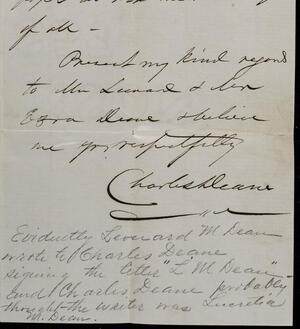 of all —
Present my kind regard
to Mr Leonard & Mr
Ezra Deane & believe
me yrs respectfully
Charles Deane
Evidently Leonard M Dean
wrote to Charles Deane
signing the letter "L M Dean"
and Charles Deane probably
thought the writer was Lucretia
M. Dean.